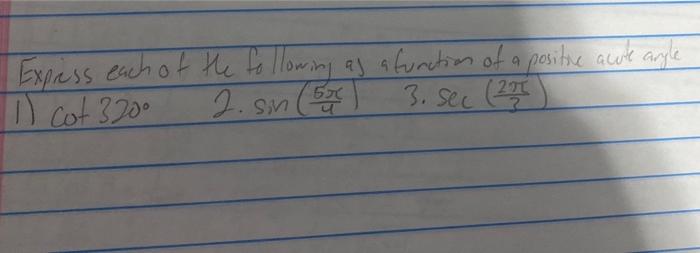 Express each of the following as a function of a positive acute angle
1) cot 320° 2. sin (5π/4) 3. sec (2π/3)